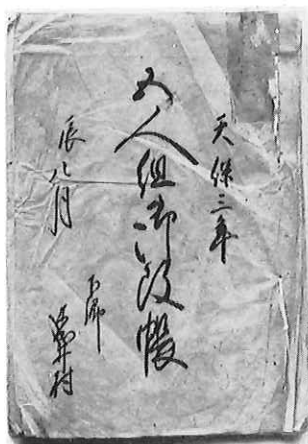 天保三年
五人組御改帳
辰八月